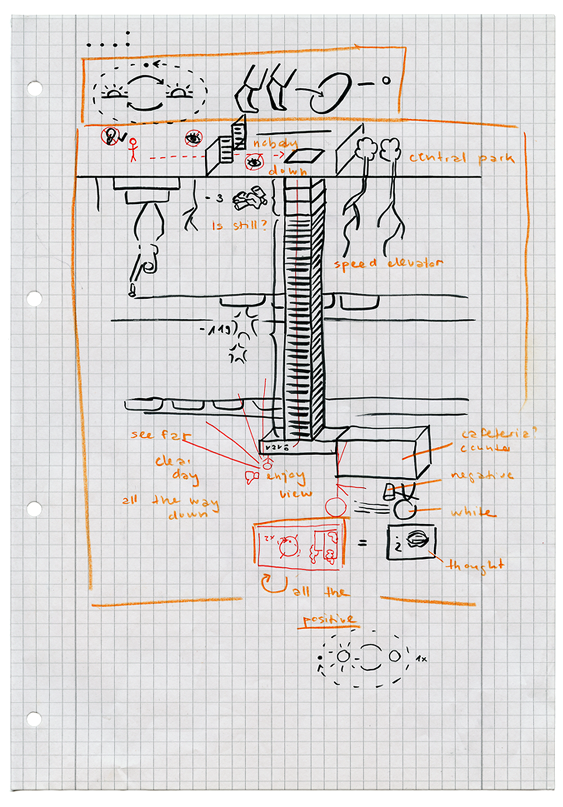 nobody
down
central park
- 3
Is still?
speed elevator
-119)
see far
clear
day
all the way
down
enjoy
view
cafeteria'
counter
negative
white
=
thought
all the
positive
1x